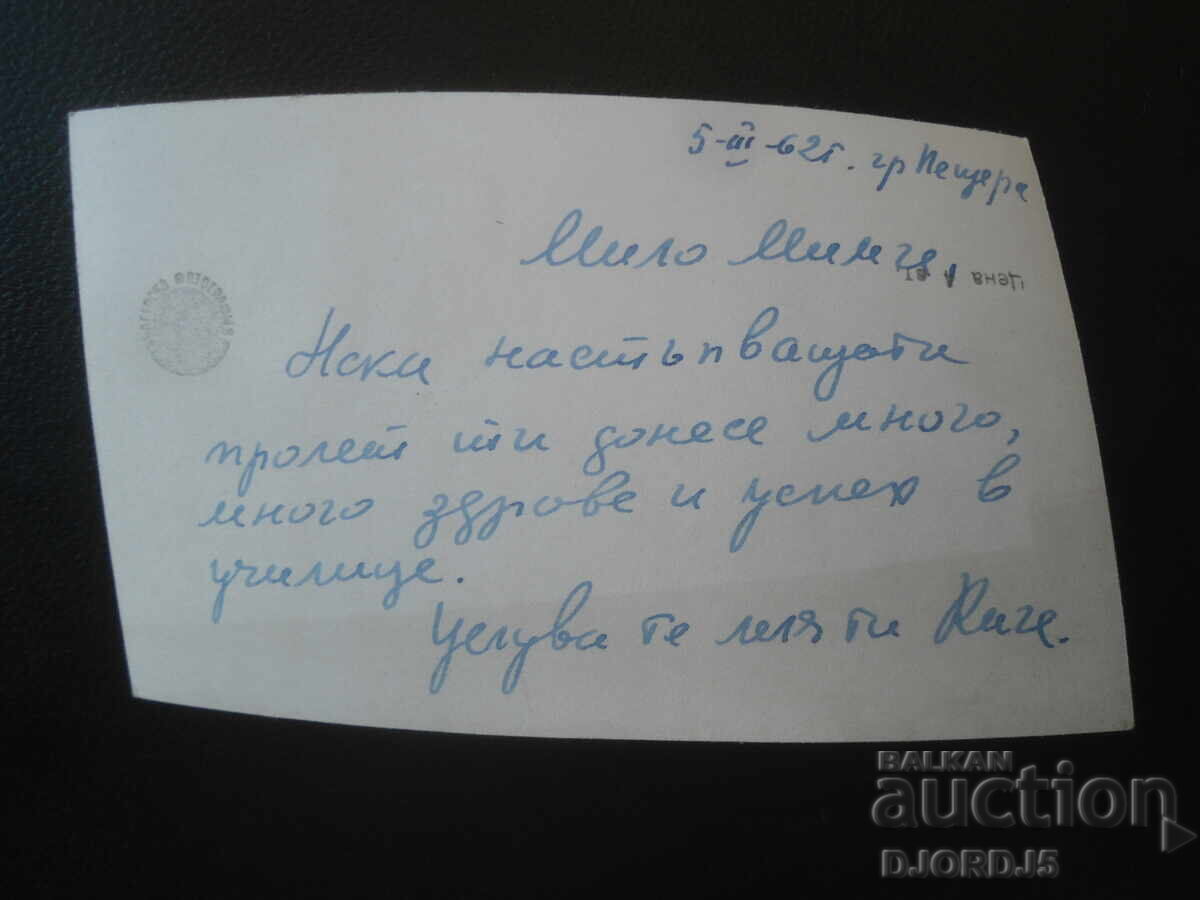 5-III-62г. гр Пещера
Мило Мимче,
Цена
Нека настъпващати
пролет ти донесе много,
много здраве и успех в
училище.
Целува те леля ти
BALKAN
auction
DJORDJ5